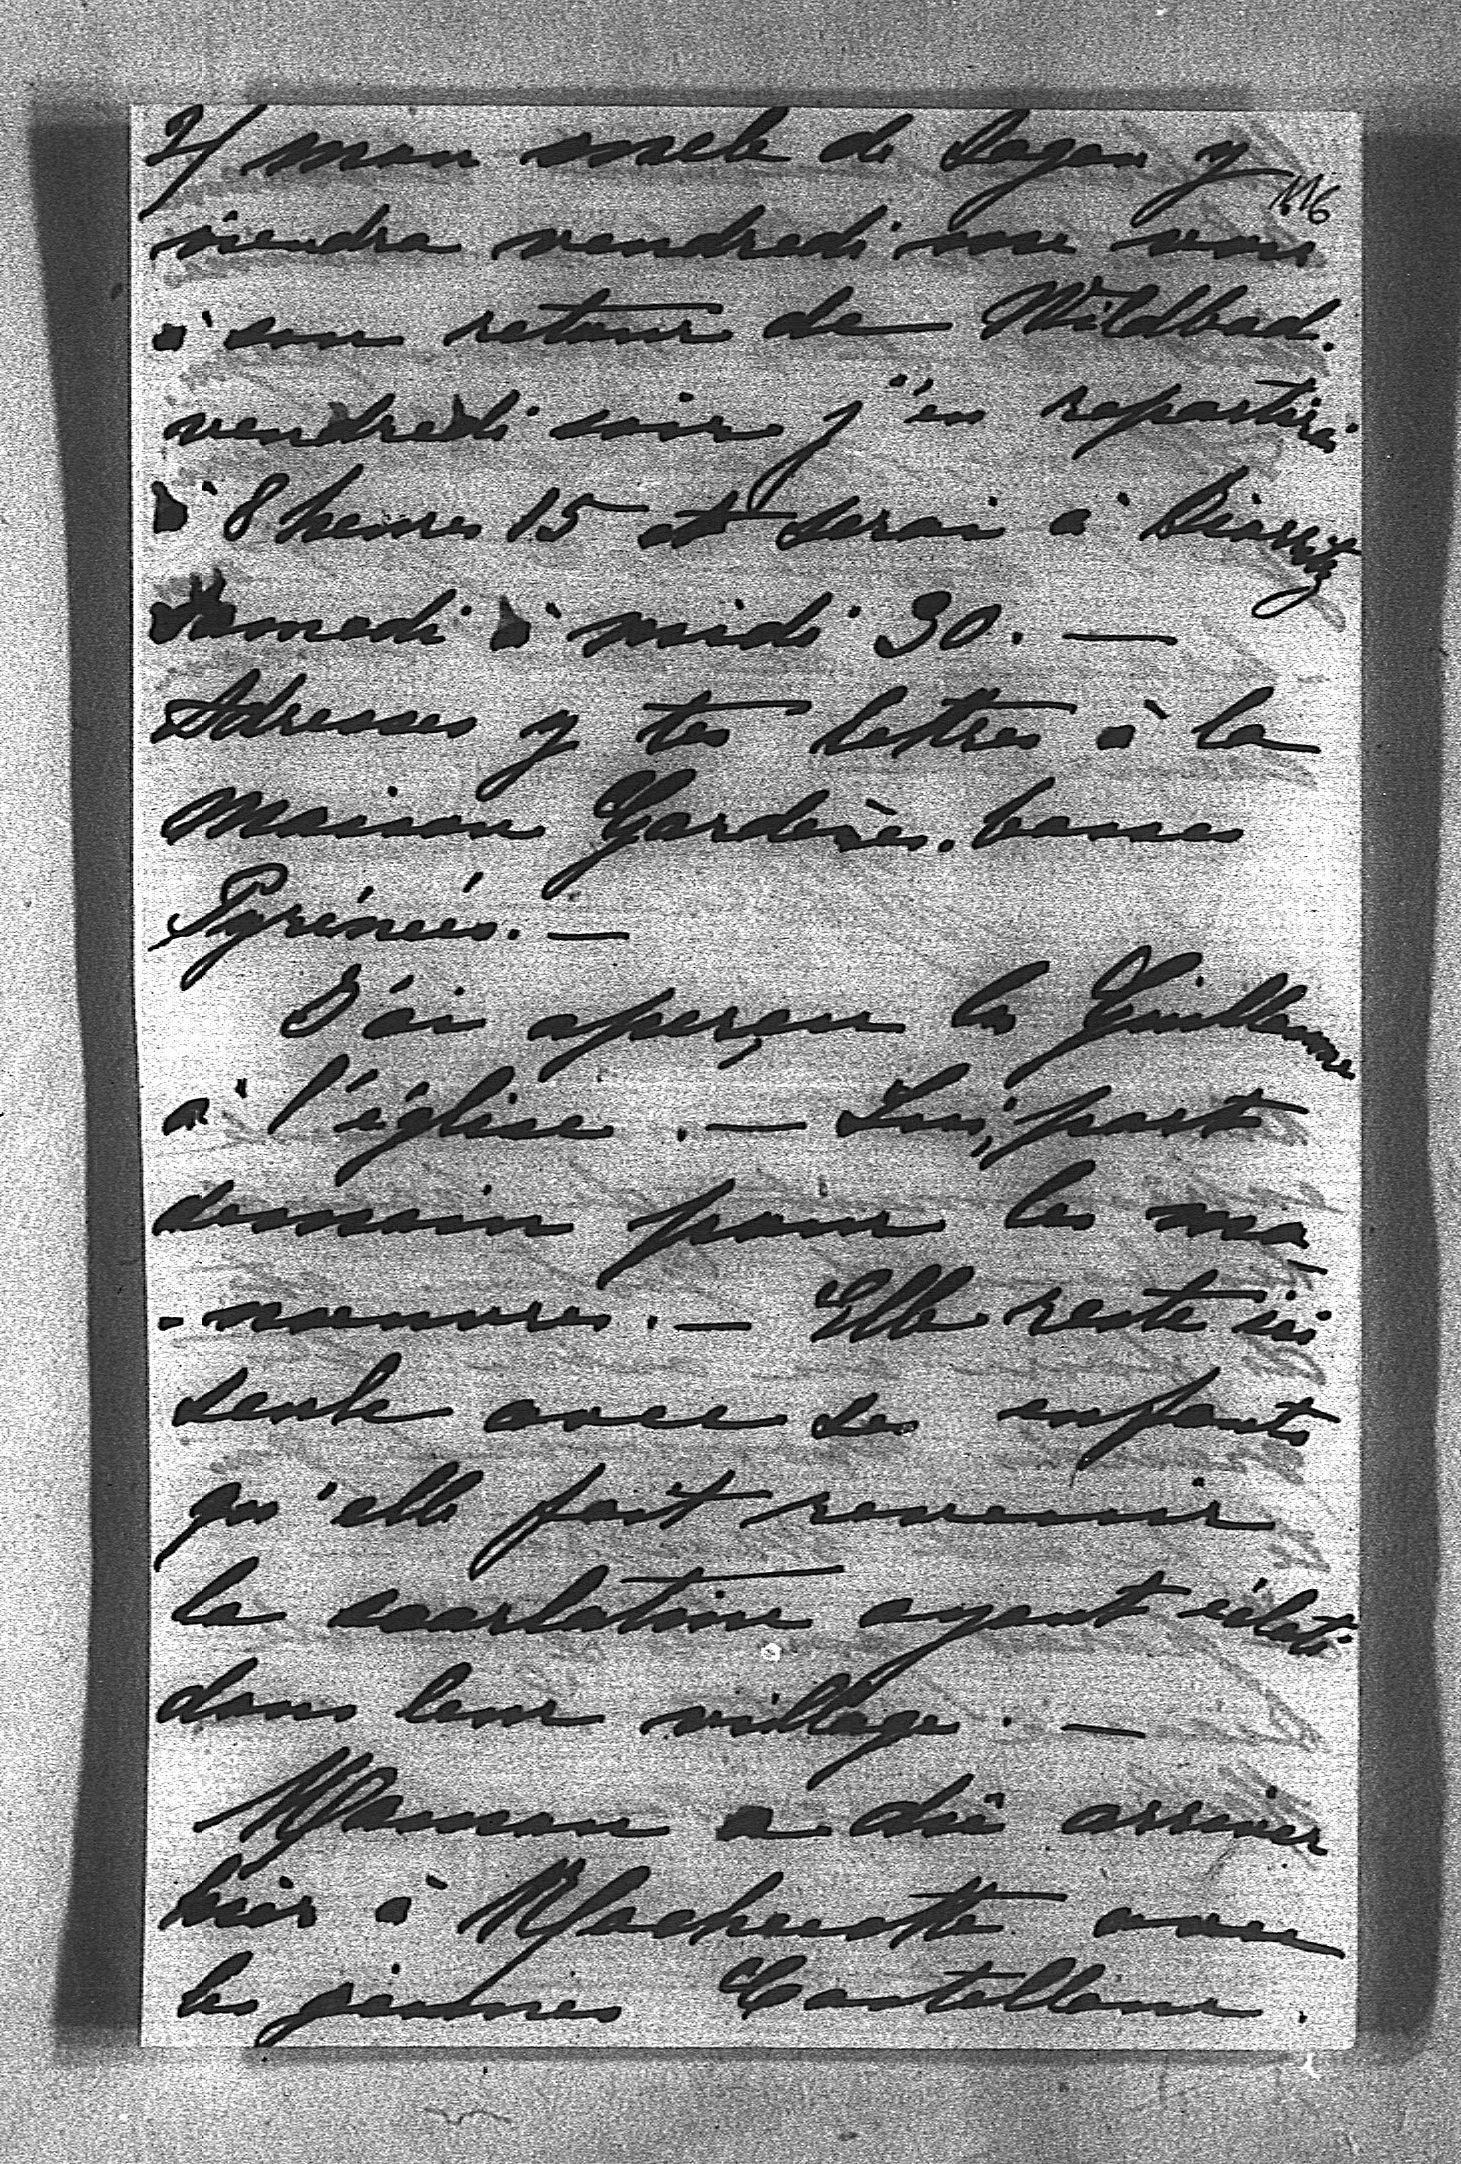 2/ mon oncle de Sagan y
116
viendra vendredi me voir
à son retour de Wildbad.
vendredi soir j'en repartirai
à 8 heures 15 et serai à Biarritz
Samedi à midi 30. —
Adresses y tes lettres à la
maison Gardères. basses
Pyrénées. —
J'ai aperçu les Guillaume
à l'église. — Lui, part
demain pour les ma-
-nœuvres. — Elle reste ici
seule avec ses enfants
qu'elle fait revenir
la scarlatine ayant éclaté
dans leur village. —
Maman a dû arriver
hier à Rochecotte avec
les jeunes Castellane.